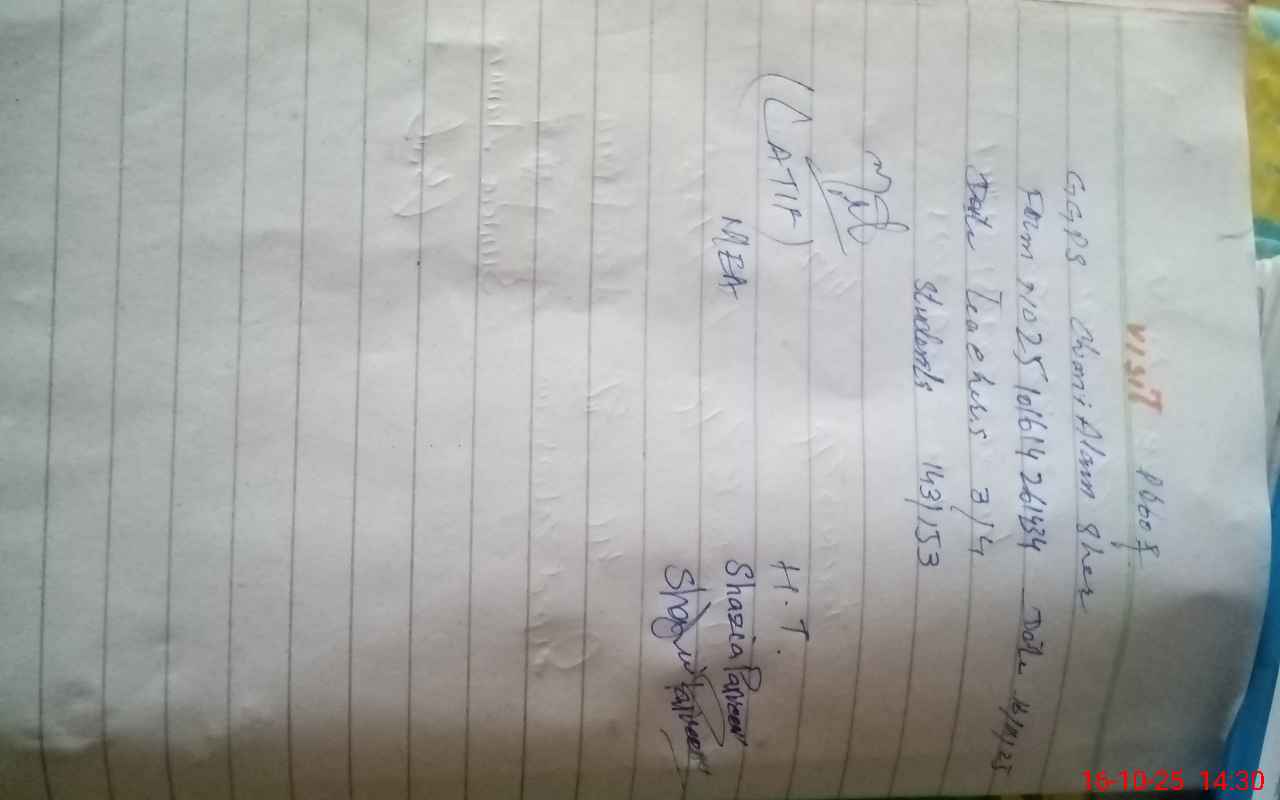 VISIT Pb608
GGPS Chani Alam Sher
Form no 2510161426434 Date 16/10/25
Teachers 3/4
Students 143/153
(LATIF)
MEA
H.T
Shazia Parveen
Shazia Parveen
16-10-25 14.30